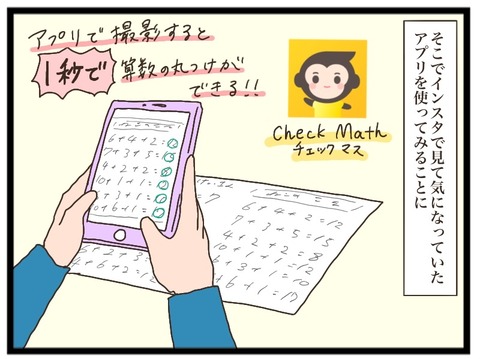 そこでインスタで見て気になっていた
アプリを使ってみることに
アプリで撮影すると
1秒で算数の丸つけが
できる!!
Check Math
チェックマス
6+4+2=
7+3+5=
4+2+2=
10+1+1=
7+3+1=
10+6+1=
6+4+2=12
7+3+5=15
4+2+2=8